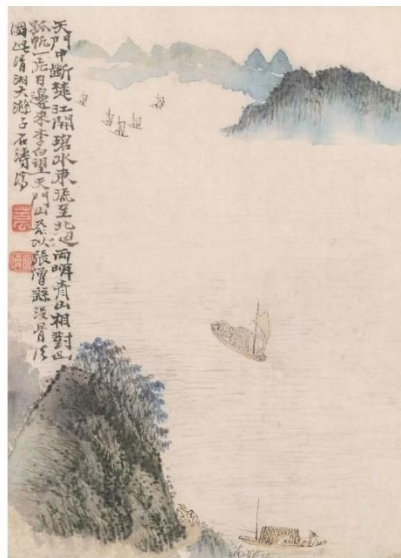 天門中斷楚江開碧水東流至北迴兩岸青山相對出
孤帆一片日邊來李白望天門山余以張僧繇沒骨法
圖此清湘大滌子石濤濟